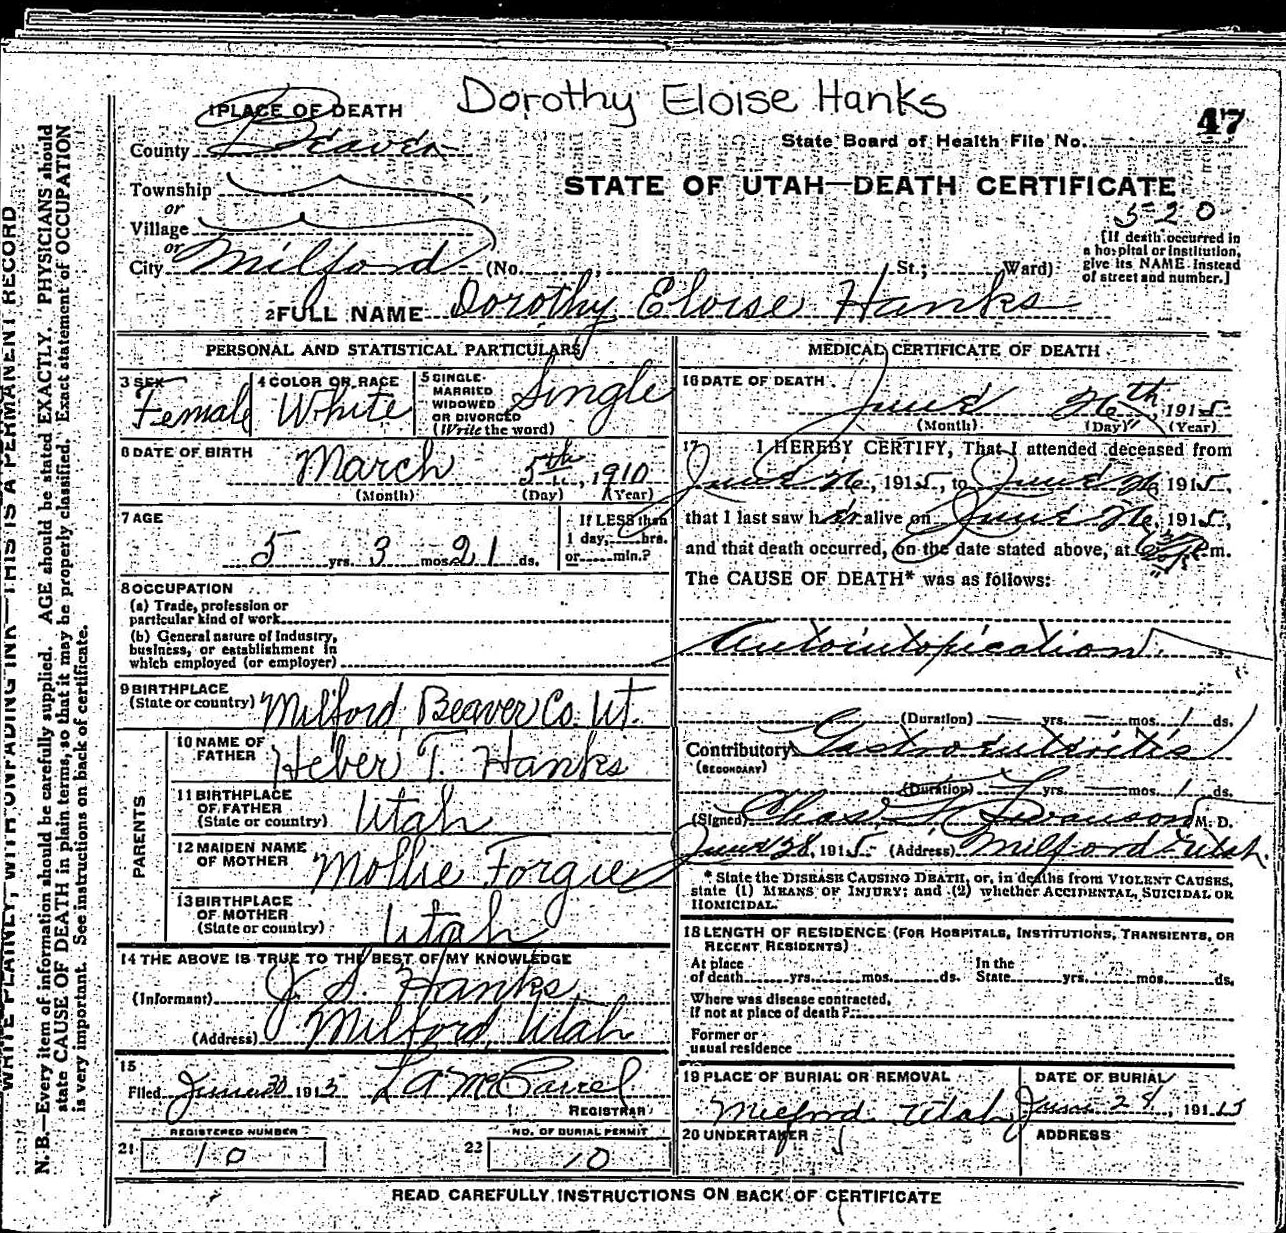 Dorothy Eloise Hanks
47
1 PLACE OF DEATH
State Board of Health File No.
County Beaver
STATE OF UTAH—DEATH CERTIFICATE
Township
or
Village
or
520
[If death occurred in
a hospital or institution,
give its NAME instead
of street and number.]
City Milford (No. St.; Ward)
2 FULL NAME Dorothy Eloise Hanks
PERSONAL AND STATISTICAL PARTICULARS
3 SEX Female
4 COLOR OR RACE White
5 SINGLE
MARRIED
WIDOWED
OR DIVORCED
(Write the word) Single
6 DATE OF BIRTH
March 5th, 1910
(Month) (Day) (Year)
7 AGE
5 yrs. 3 mos. 21 ds.
If LESS than
1 day, hrs.
or min.?
8 OCCUPATION
(a) Trade, profession or
particular kind of work
(b) General nature of Industry,
business, or establishment in
which employed (or employer)
9 BIRTHPLACE
(State or country) Milford Beaver Co. Ut.
PARENTS
10 NAME OF
FATHER Heber T. Hanks
11 BIRTHPLACE
OF FATHER
(State or country) Utah
12 MAIDEN NAME
OF MOTHER Mollie Forgie
13 BIRTHPLACE
OF MOTHER
(State or country) Utah
14 THE ABOVE IS TRUE TO THE BEST OF MY KNOWLEDGE
(Informant) J. S. Hanks
(Address) Milford, Utah
15
Filed June 30 1915
REGISTRAR
REGISTERED NUMBER
21 10
NO. OF BURIAL PERMIT
22 10
MEDICAL CERTIFICATE OF DEATH
16 DATE OF DEATH
June 26th, 1915
(Month) (Day) (Year)
17 I HEREBY CERTIFY, That I attended deceased from
June 26, 1915, to June 26 1915,
that I last saw her alive on June 26, 1915,
and that death occurred, on the date stated above, at m.
The CAUSE OF DEATH* was as follows:
Autointoxication
(Duration) yrs. mos. 1 ds.
Contributory Gastroenteritis
(SECONDARY)
(Duration) yrs. mos. 1 ds.
(Signed) Chas Swanson M. D.
June 28, 1915 (Address) Milford Utah
* State the DISEASE CAUSING DEATH, or, in deaths from VIOLENT CAUSES,
state (1) MEANS OF INJURY; and (2) whether ACCIDENTAL, SUICIDAL OR
HOMICIDAL.
18 LENGTH OF RESIDENCE (FOR HOSPITALS, INSTITUTIONS, TRANSIENTS, OR
RECENT RESIDENTS)
At place In the
of death yrs. mos. ds. State yrs. mos. ds.
Where was disease contracted,
if not at place of death?
Former or
usual residence
19 PLACE OF BURIAL OR REMOVAL
Milford Utah
DATE OF BURIAL
June 28, 1915
20 UNDERTAKER
ADDRESS
READ CAREFULLY INSTRUCTIONS ON BACK OF CERTIFICATE
WRITE PLAINLY, WITH UNFADING INK—THIS IS A PERMANENT RECORD
N. B.—Every item of information should be carefully supplied. AGE should be stated EXACTLY. PHYSICIANS should
state CAUSE OF DEATH in plain terms, so that it may be properly classified. Exact statement of OCCUPATION
is very important. See instructions on back of certificate.